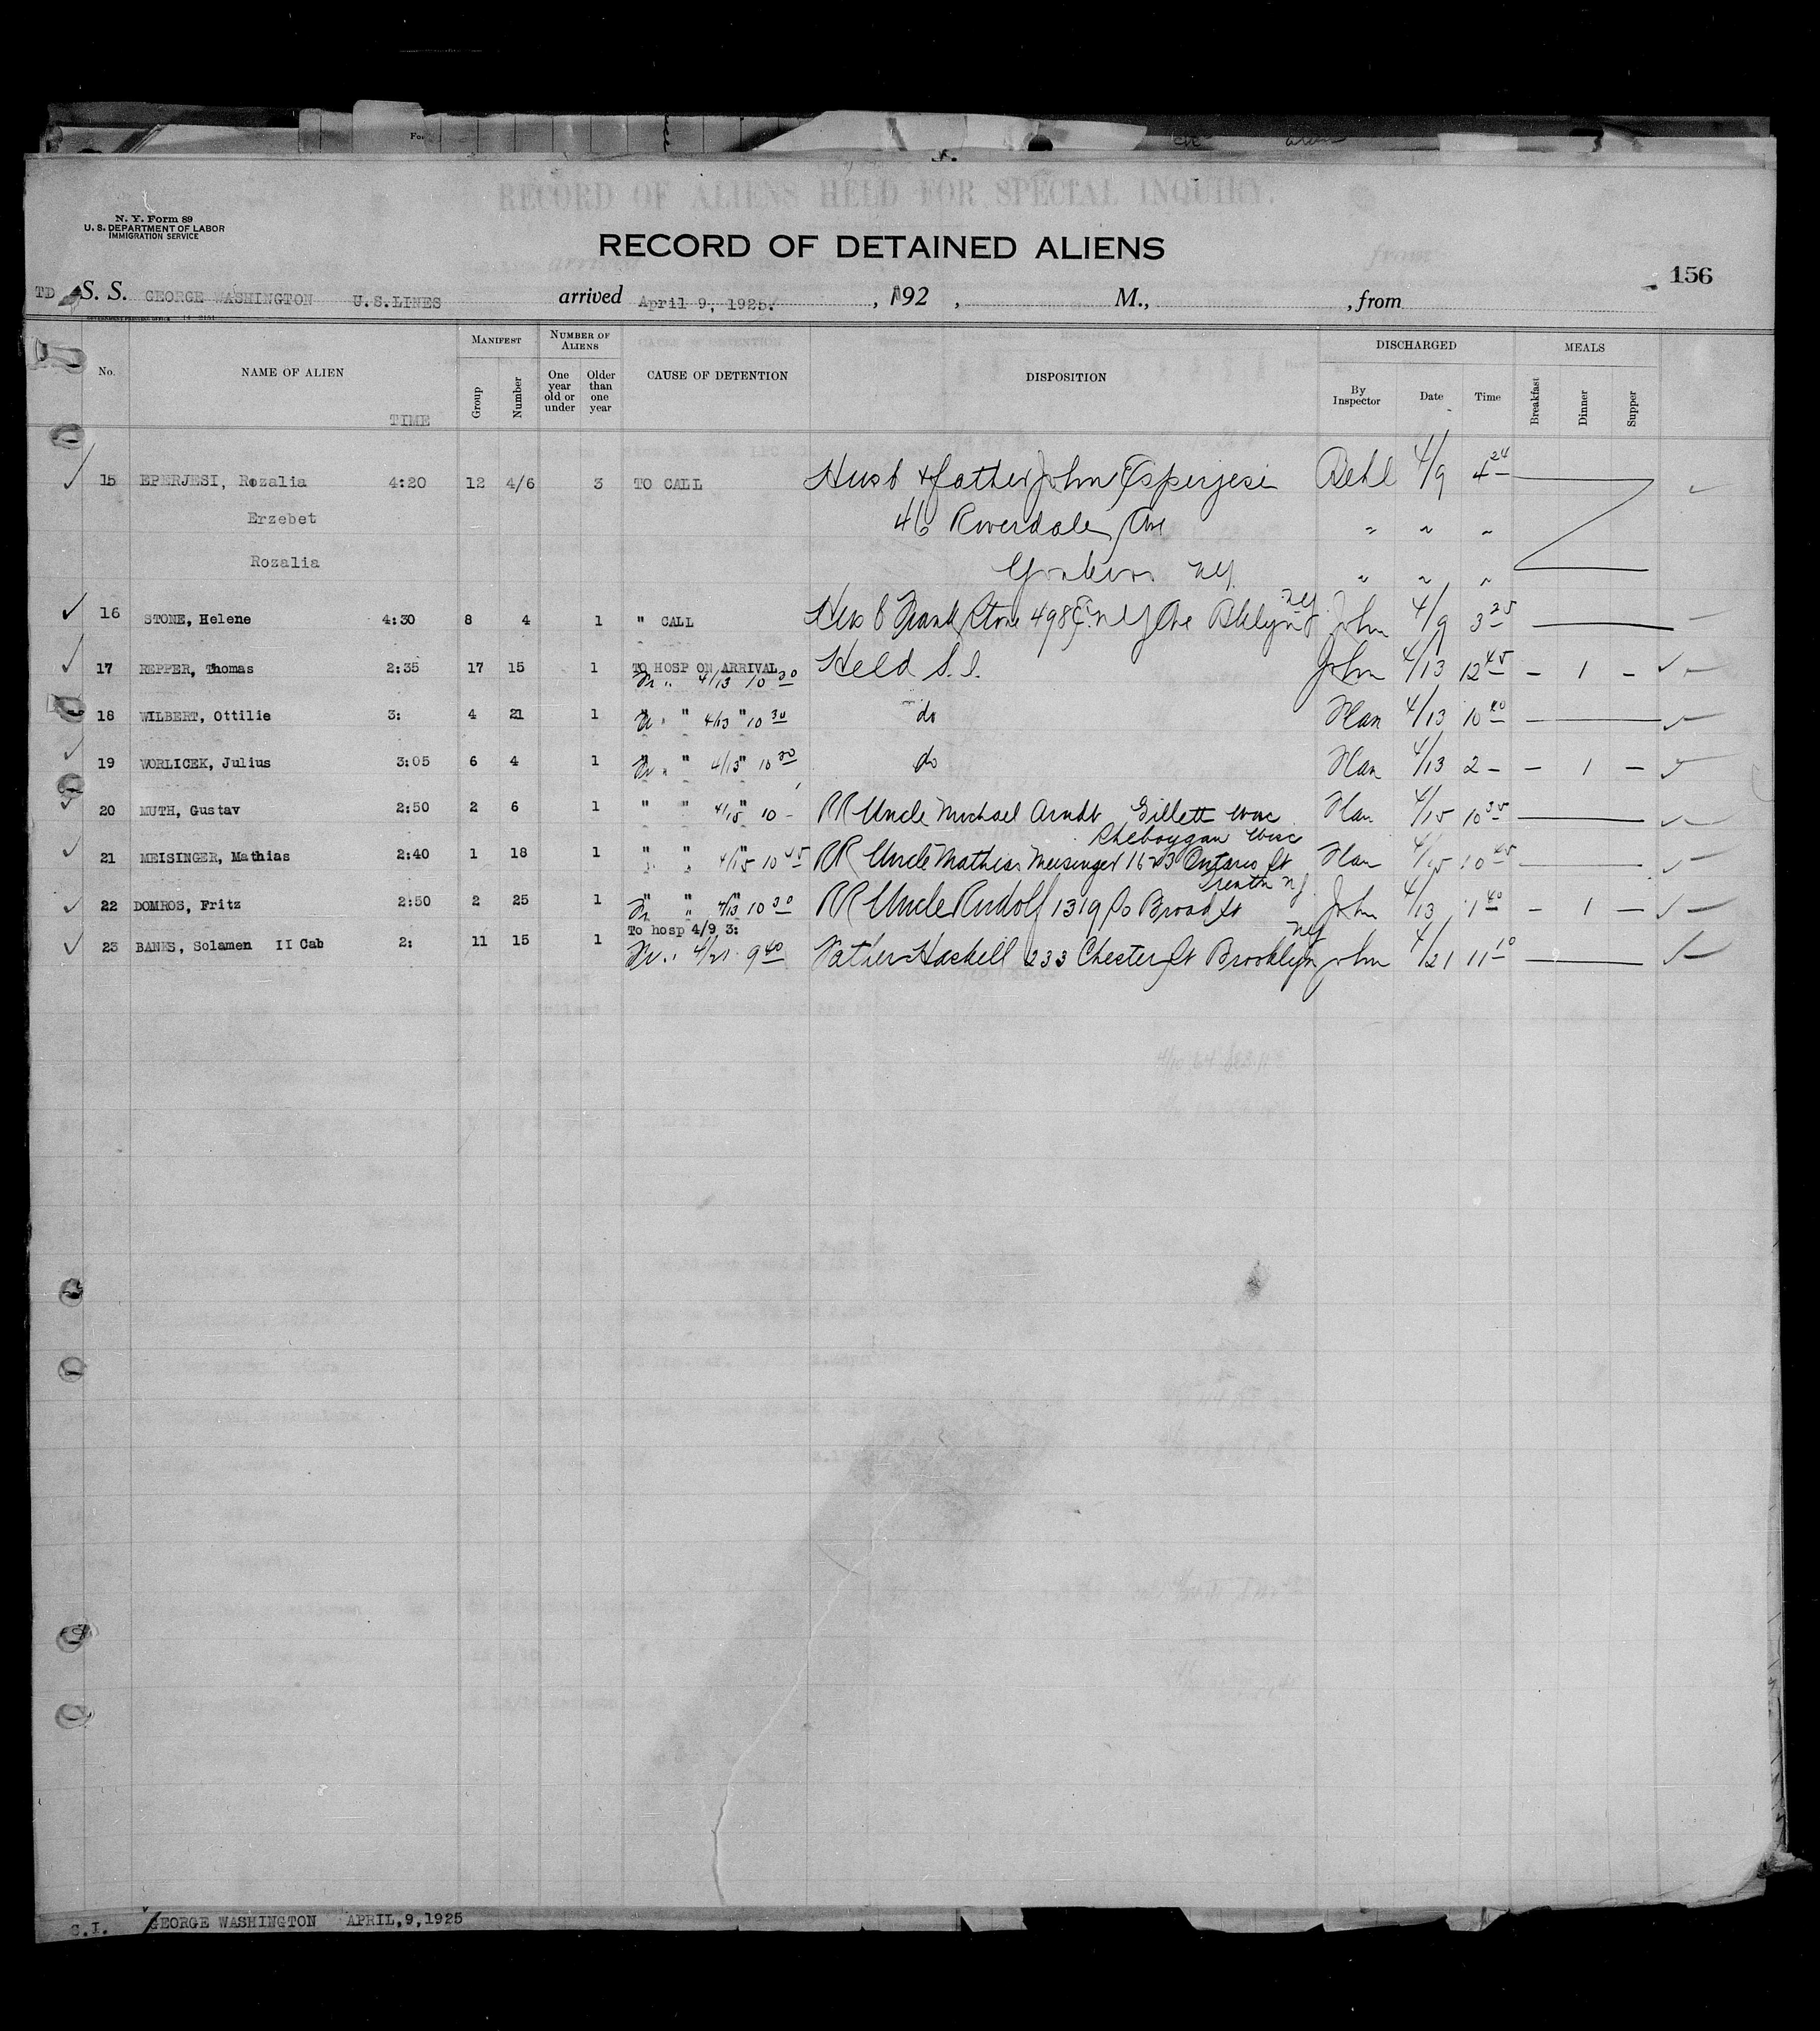 RECORD OF ALIENS HELD FOR SPECIAL INQUIRY.
N. Y. Form 89
U. S. DEPARTMENT OF LABOR
IMMIGRATION SERVICE
RECORD OF DETAINED ALIENS
156
TD S. S. GEORGE WASHINGTON U.S.LINES arrived April 9, 1925. , 192 , M., , from
No. NAME OF ALIEN TIME MANIFEST Group Number NUMBER OF ALIENS One year old or under Older than one year CAUSE OF DETENTION DISPOSITION DISCHARGED By Inspector Date Time MEALS Breakfast Dinner Supper
15 EPERJESI, Rozalia 4:20 12 4/6 3 TO CALL Husb & father John Esperjesi 4/9 4 24
Erzebet 46 Riverdale Ave " " "
Rozalia Yonkers NY " " "
16 STONE, Helene 4:30 8 4 1 " CALL Husb Frank Stone 498 NY Ave Bklyn NY John 4/9 3 25
17 REPPER, Thomas 2:35 17 15 1 TO HOSP ON ARRIVAL Held S.I. John 4/13 12 45 - 1 -
Fr " 4/13 10 30
18 WILBERT, Ottilie 3: 4 21 1 " " " 4/13 10 30 do Han 4/13 10 40
19 WORLICEK, Julius 3:05 6 4 1 " " " 4/13 10 30 do Han 4/13 2 - - 1 -
20 MUTH, Gustav 2:50 2 6 1 " " " 4/15 10 - RR Uncle Michael Arndt Gillett Wisc Han 4/15 10 35
Sheboygan Wisc
21 MEISINGER, Mathias 2:40 1 18 1 " " 4/15 10 45 RR Uncle Mathias Meisinger 1623 Ontario St Han 4/15 10 45
Trenton NJ
22 DOMROS, Fritz 2:50 2 25 1 " " " 4/13 10 30 RR Uncle Rudolf 1319 So Broad St John 4/13 1 40 - 1 -
To hosp 4/9 3: NY
23 BANES, Solamen II Cab 2: 11 15 1 Fr " 4/21 9 40 Father Haskell 233 Chester St Brooklyn John 4/21 11 10
S.I. GEORGE WASHINGTON APRIL,9,1925